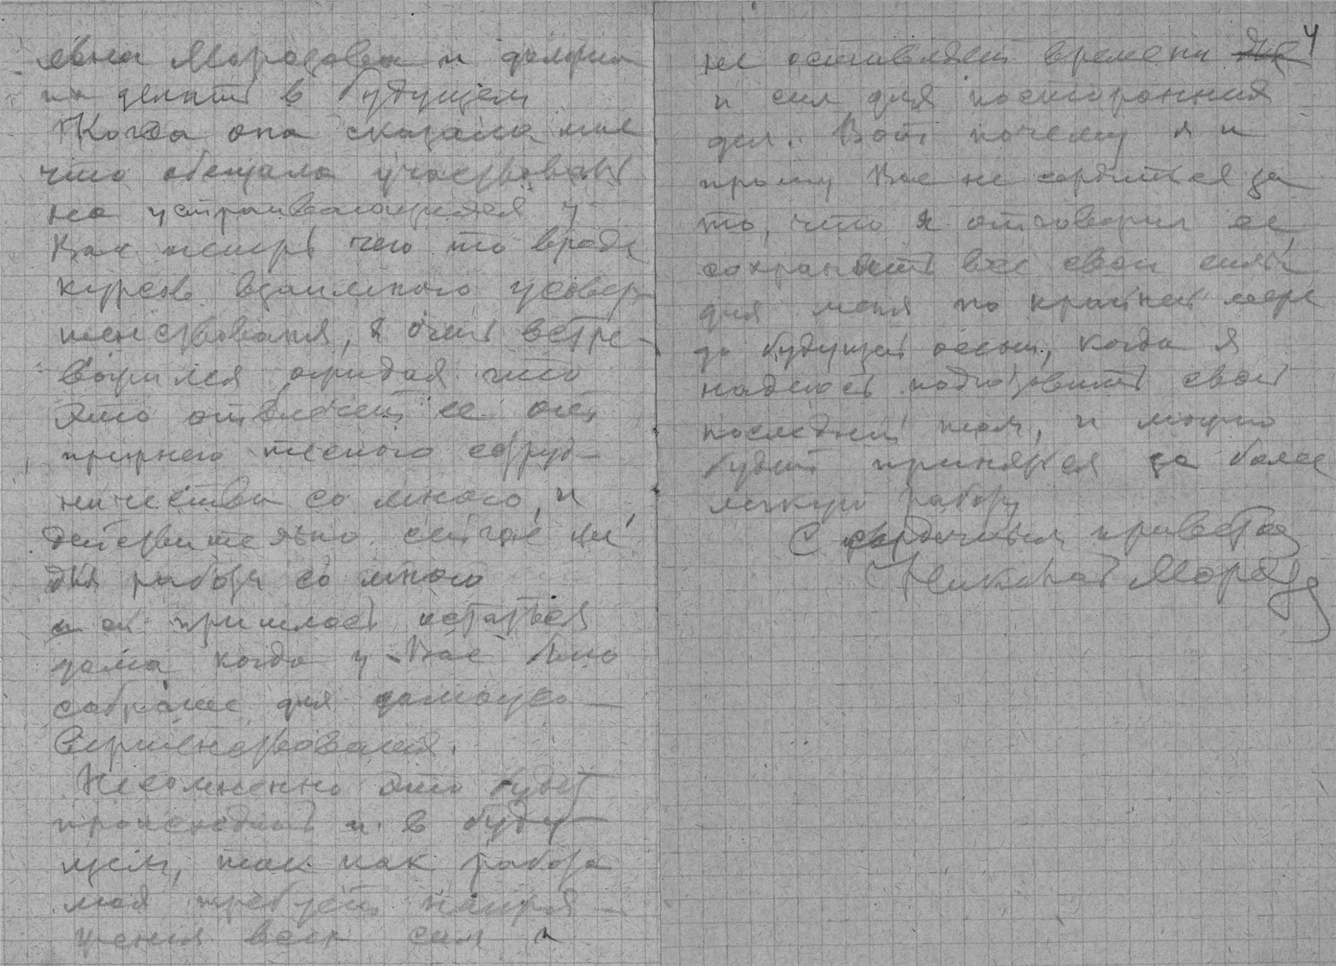 евна Морозова и должна
не делать в будущем
Когда она сказала мне
что обещала участвовать
на устраивающихся у
Вас теперь чего то вроде
курсов взаимного усовер-
шенствования, я был встре-
вожился ожидая что
это отвлечет ее от
прежнего тесного сотруд-
ничества со мною, и
действительно сейчас
для работы со мною
ей пришлось остаться
дома когда у Вас было
собрание для самоусо-
вершенствования.
Несомненно это будет
происходить и в буду-
щем, так как работа
моя требует напря-
жения всех сил и
4
не оставляет времени
и сил для посторонних
дел. Вот почему я и
прошу Вас не сердиться за
то, что я отговорил ее,
сохранить все свои силы
для меня по крайней мере
до будущей осени, когда я
надеюсь подготовить свой
последний том, и можно
будет приняться за более
легкую работу
С сердечным приветом
Николай Морозов